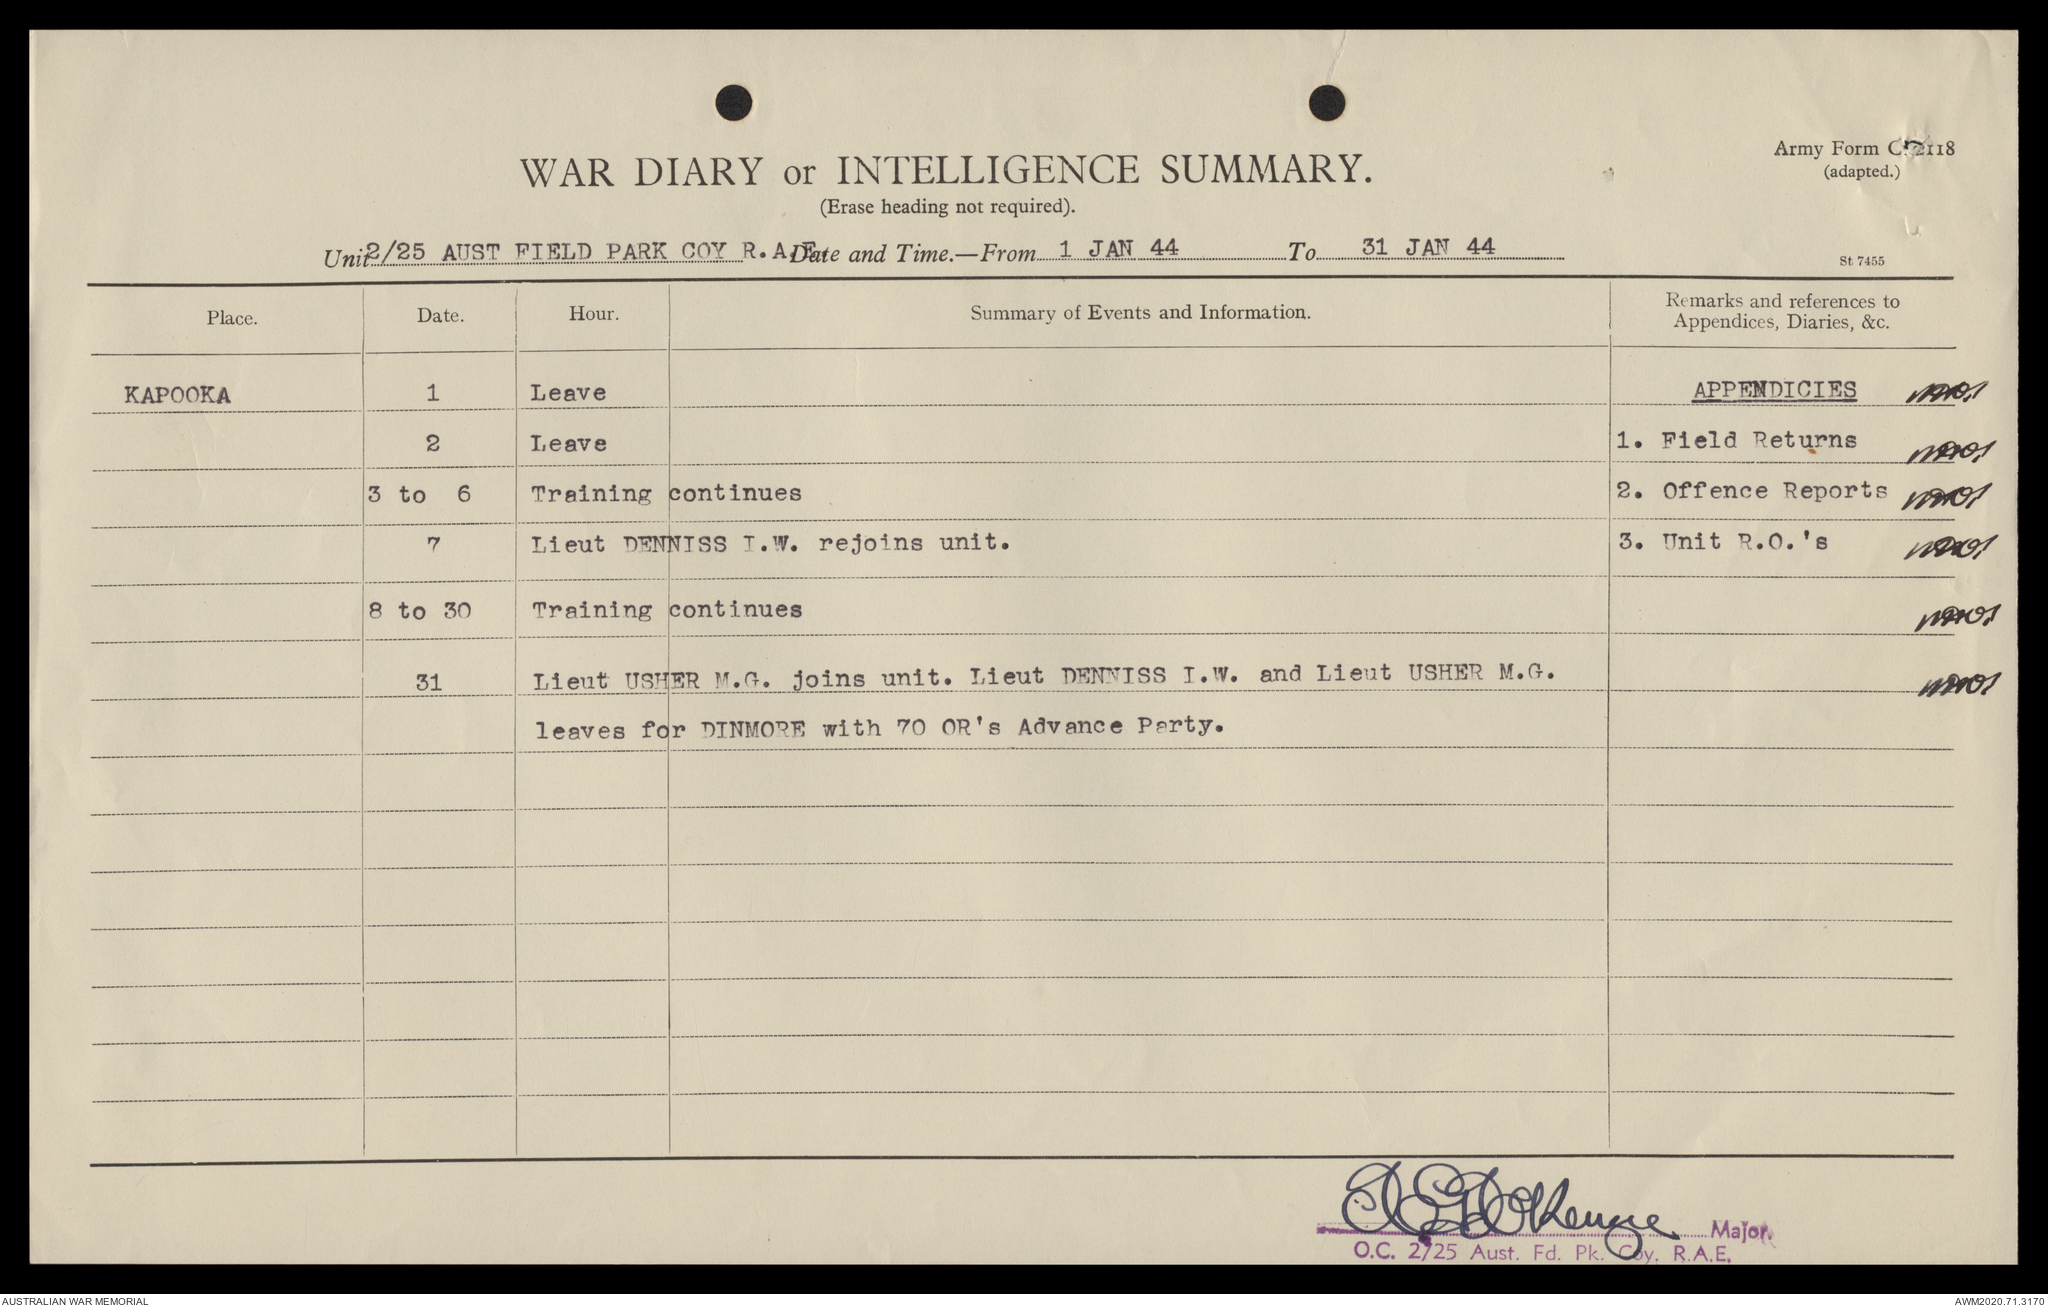 Army Form C. 2118
(adapted.)
WAR DIARY or INTELLIGENCE SUMMARY.
(Erase heading not required).
Unit 2/25 AUST FIELD PARK COY R.A.E. Date and Time.—From 1 JAN 44 To 31 JAN 44
St 7455
Place. Date. Hour. Summary of Events and Information. Remarks and references to
Appendices, Diaries, &c.
KAPOOKA 1 Leave APPENDICIES
2 Leave 1. Field Returns
3 to 6 Training continues 2. Offence Reports
7 Lieut DENNISS I.W. rejoins unit. 3. Unit R.O.'s
8 to 30 Training continues
31 Lieut USHER M.G. joins unit. Lieut DENNISS I.W. and Lieut USHER M.G.
leaves for DINMORE with 70 OR's Advance Party.
Major
O.C. 2/25 Aust. Fd. Pk. Coy. R.A.E.
AUSTRALIAN WAR MEMORIAL
AWM2020.71.3170